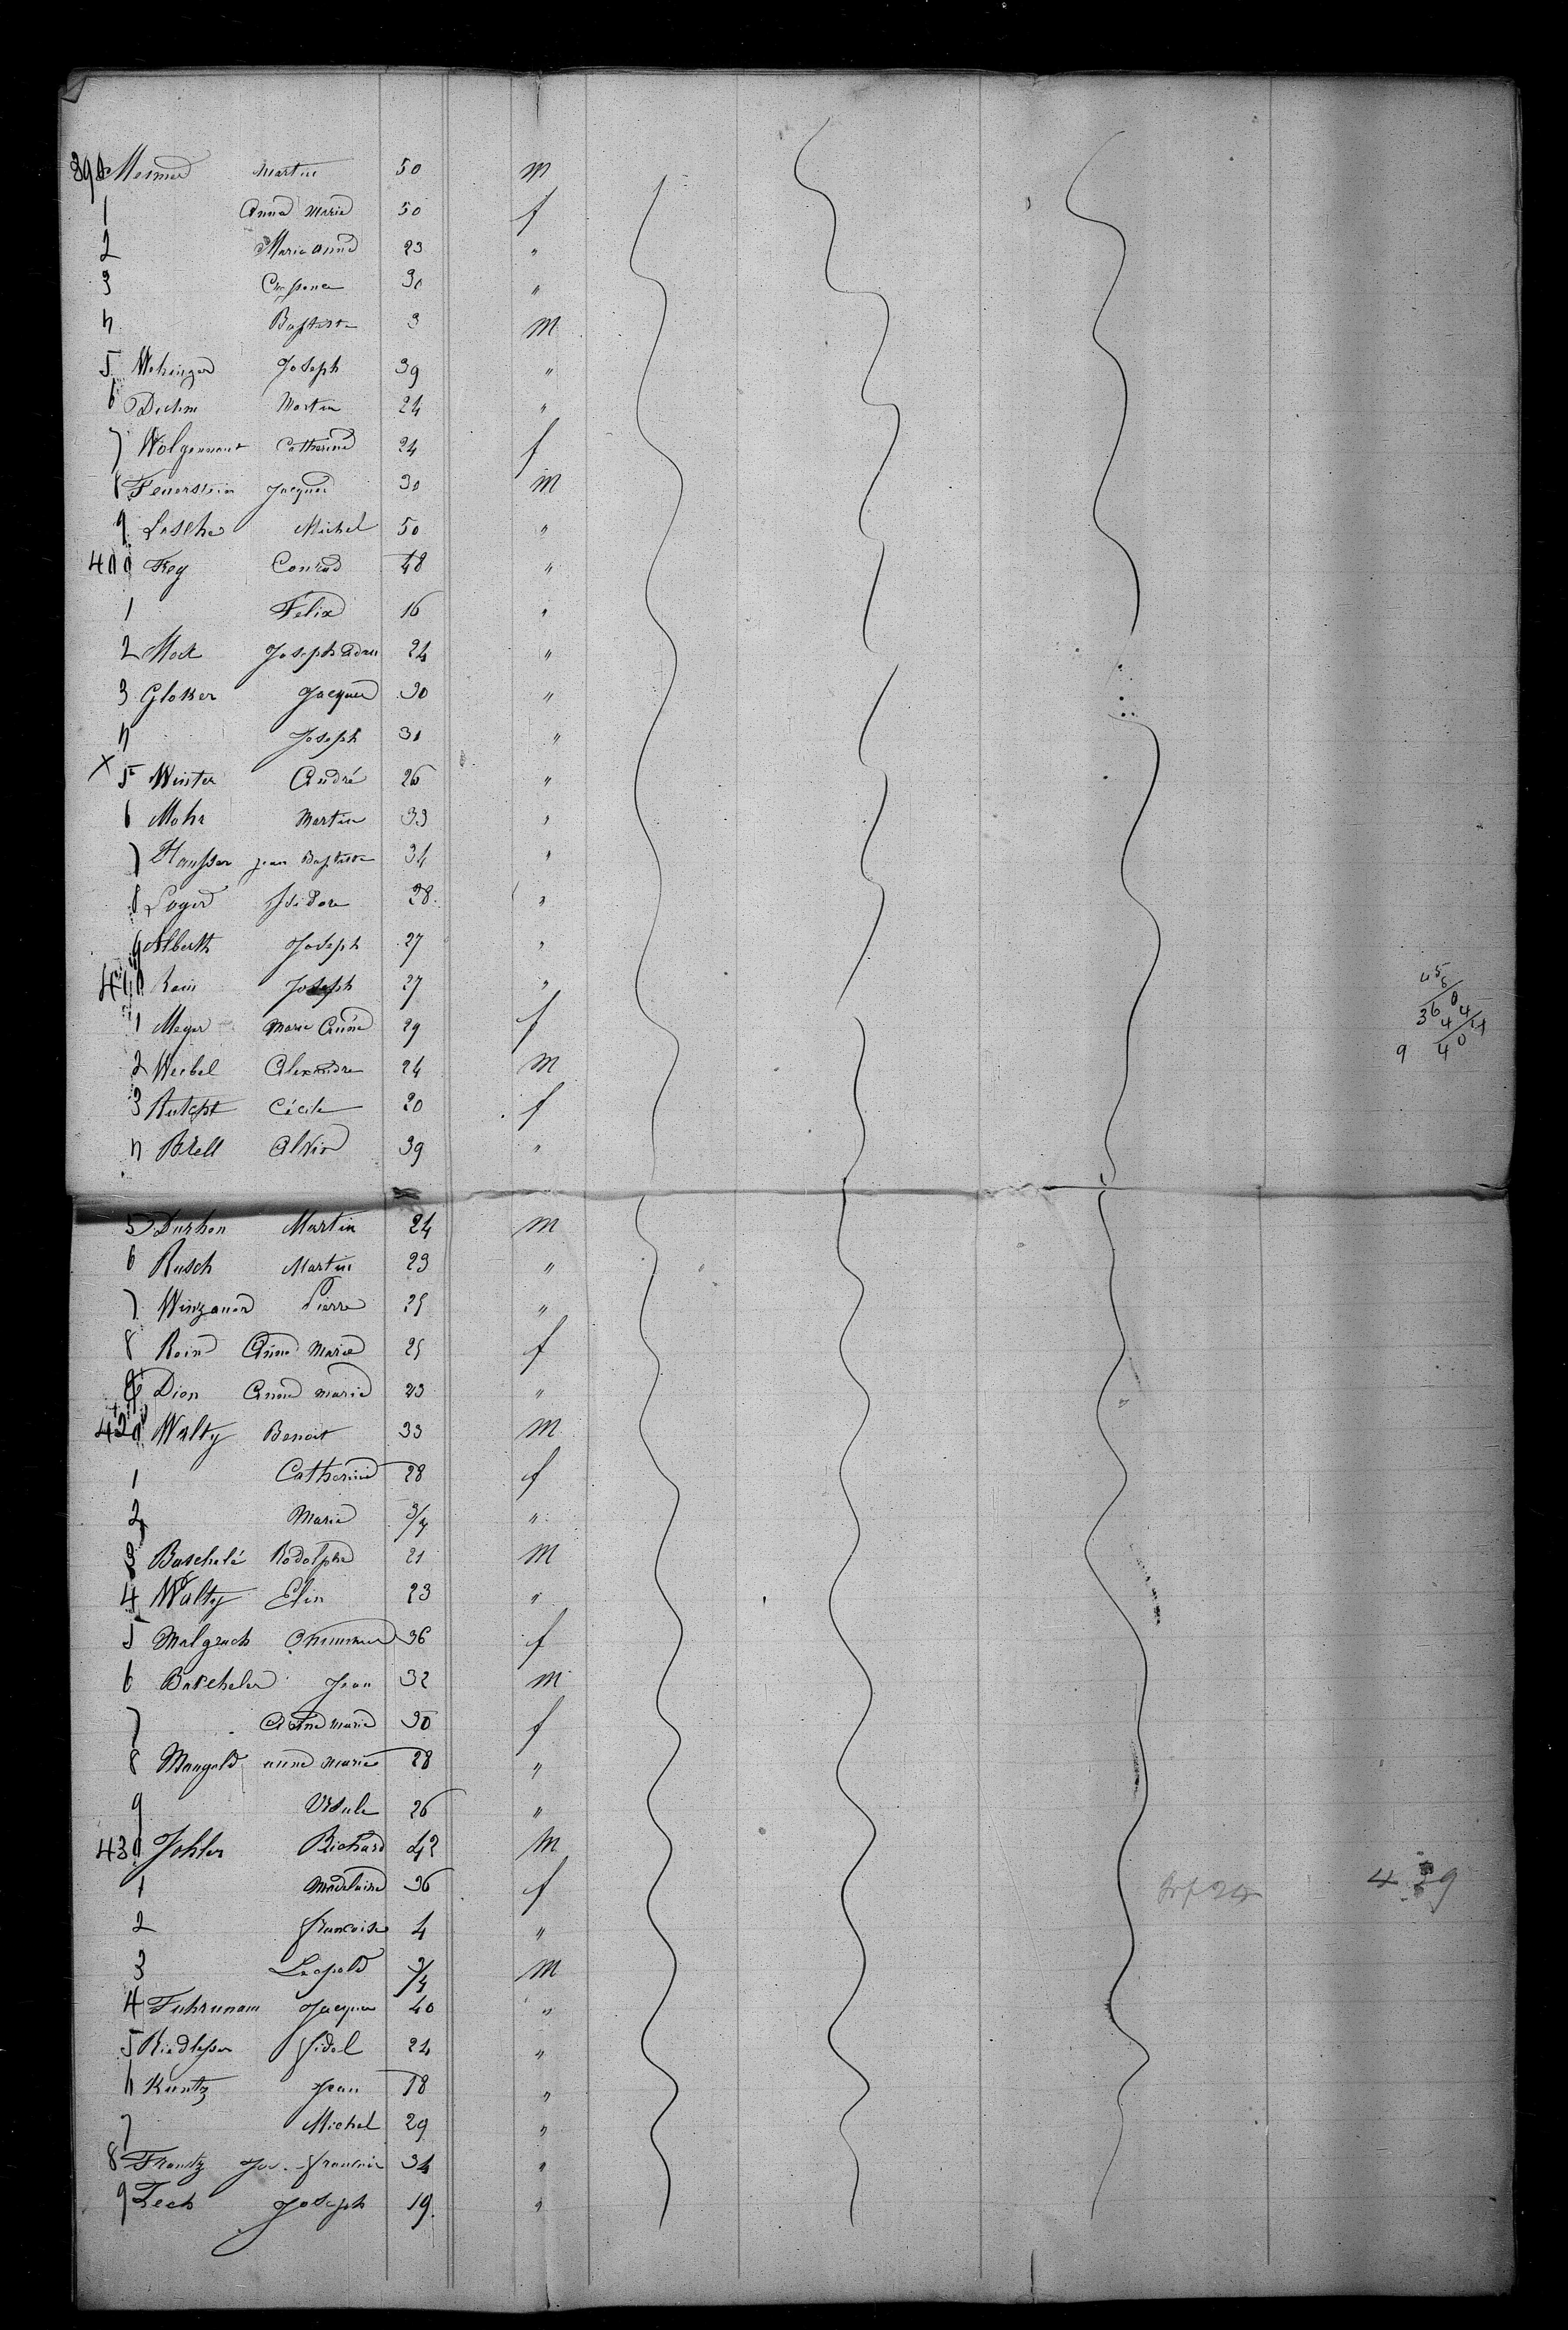 390 Mesmer Martin 50 m
1 Anna Maria 50 f
2 Marie Anna 23 "
3 30 "
4 Baptiste 3 M
5 Wehinger Joseph 39 "
6 Diehm Martin 24 "
7 Wolgennant Catherine 24 f
8 Feuerstein Jacques 30 M
9 Michel 50 "
400 Frey Conrad 48 "
1 Felix 16 "
2 Joseph 24 "
3 Glosser Jacques 30 "
4 Joseph 30 "
X 5 Winter André 26 "
6 Mohr Martin 33 "
7 Hausser jean Baptiste 34 "
8 Loger Isidore 28. "
9 Alberth Joseph 27 "
410 Rein Joseph 27 "
1 Meyer Marie Anne 29 f
2 Weibel Alexandre 24 M
3 Cécile 20 f
4 Brell 39 "
45
360
4
9 40
5 Durhon Martin 24 M
6 Rusch Martin 23 "
7 Winzauer Pierre 25 "
8 Rein Anna Maria 25 f
9 Dion Anna maria 23 "
420 Walty Benoit 33 M
1 Catherine 28 f
2 Maria 3/4 "
3 Baschelé Rodolphe 21 M
4 Walty 23 "
5 Malgrach 36 f
6 Bascheler Jean 32 M
7 Anna maria 30 f
8 Mangold anna maria 28 "
9 Ursule 26 "
430 Johler Richard 42 M
1 Madelaine 36 f
439
2 françoise 4 "
3 Leopold 3/4 M
4 Fuhrmann Jacques 40 "
5 Riedlesser fidel 24 "
6 Kuntz Jean 18 "
7 Michel 29 "
8 Frantz Jos. francois 34 "
9 Zech Joseph 19. "